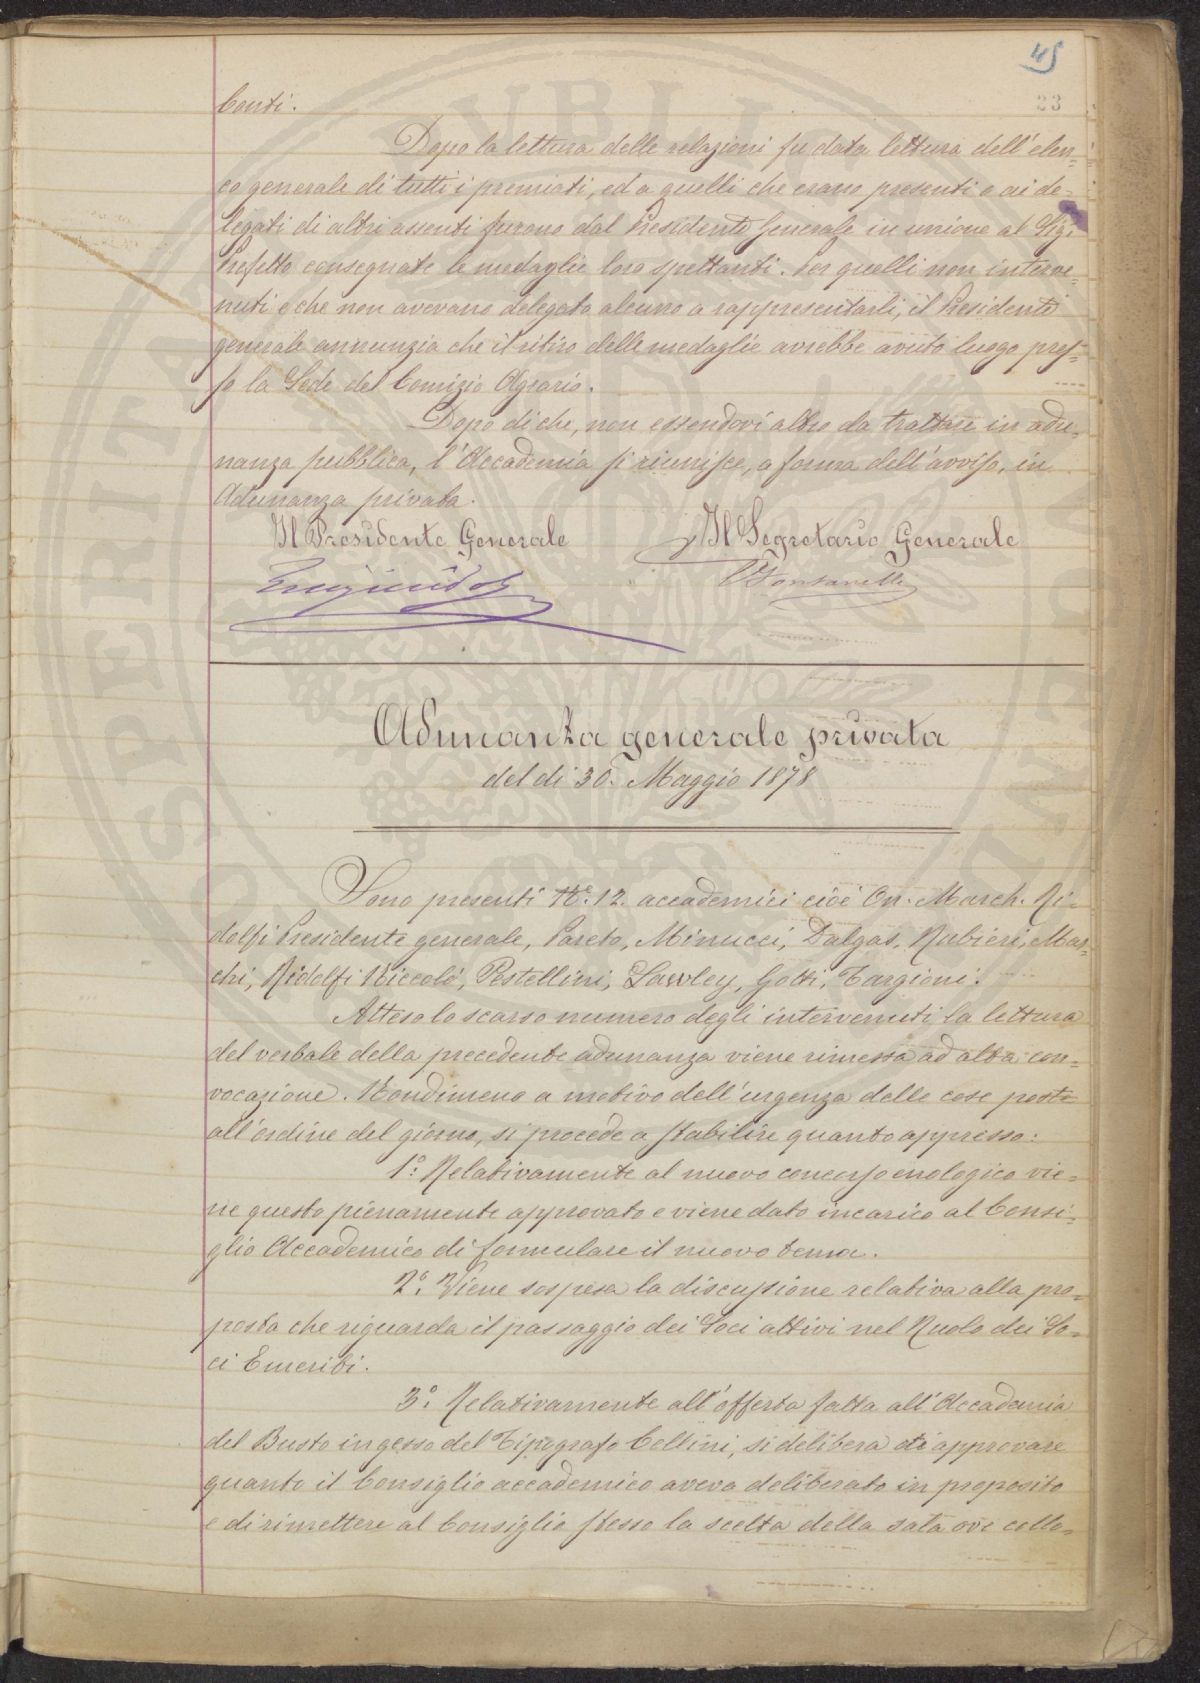 45
23
Conti.
Dopo la lettura delle relazioni fu data lettura dell'elen-
co generale di tutti i premiati, ed a quelli che erano presenti o ai de-
legati di altri assenti furono dal Presidente Generale in unione al Sigr.
Prefetto consegnate le medaglie loro spettanti. Per quelli non interve-
nuti e che non avevano delegato alcuno a rappresentarli, il Presidente
generale annunzia che il ritiro delle medaglie avrebbe avuto luogo pres-
so la Sede del Comizio Agrario.
Dopo di che, non essendovi altro da trattare in adu-
nanza pubblica, l'Accademia si riunisce, a forma dell'avviso, in
Adunanza privata.
Il Presidente Generale
Il Segretario Generale
Fontanelli
Adunanza generale privata
del dì 30. Maggio 1878
Sono presenti No. 12. accademici cioè On. March. Ri-
dolfi Presidente generale, Pareto, Minucci, Dalgas, Rubieri, Mar-
chi, Ridolfi Niccolò, Pestellini, Lawley, Gotti, Targioni.
Atteso lo scarso numero degli intervenuti, la lettura
del verbale della precedente adunanza viene rimessa ad altra con-
vocazione. Nondimeno a motivo dell'urgenza delle cose poste
all'ordine del giorno, si procede a stabilire quanto appresso:
1.o Relativamente al nuovo concorso enologico vie-
ne questo pienamente approvato e viene dato incarico al Consi-
glio Accademico di formulare il nuovo tema.
2.o Viene sospesa la discussione relativa alla pro-
posta che riguarda il passaggio dei Soci attivi nel Ruolo dei So-
ci Emeriti.
3.o Relativamente all'offerta fatta all'Accademia
del Busto in gesso del Tipografo Cellini, si delibera di approvare
quanto il Consiglio accademico aveva deliberato in proposito
e di rimettere al Consiglio stesso la scelta della sala ove collo-